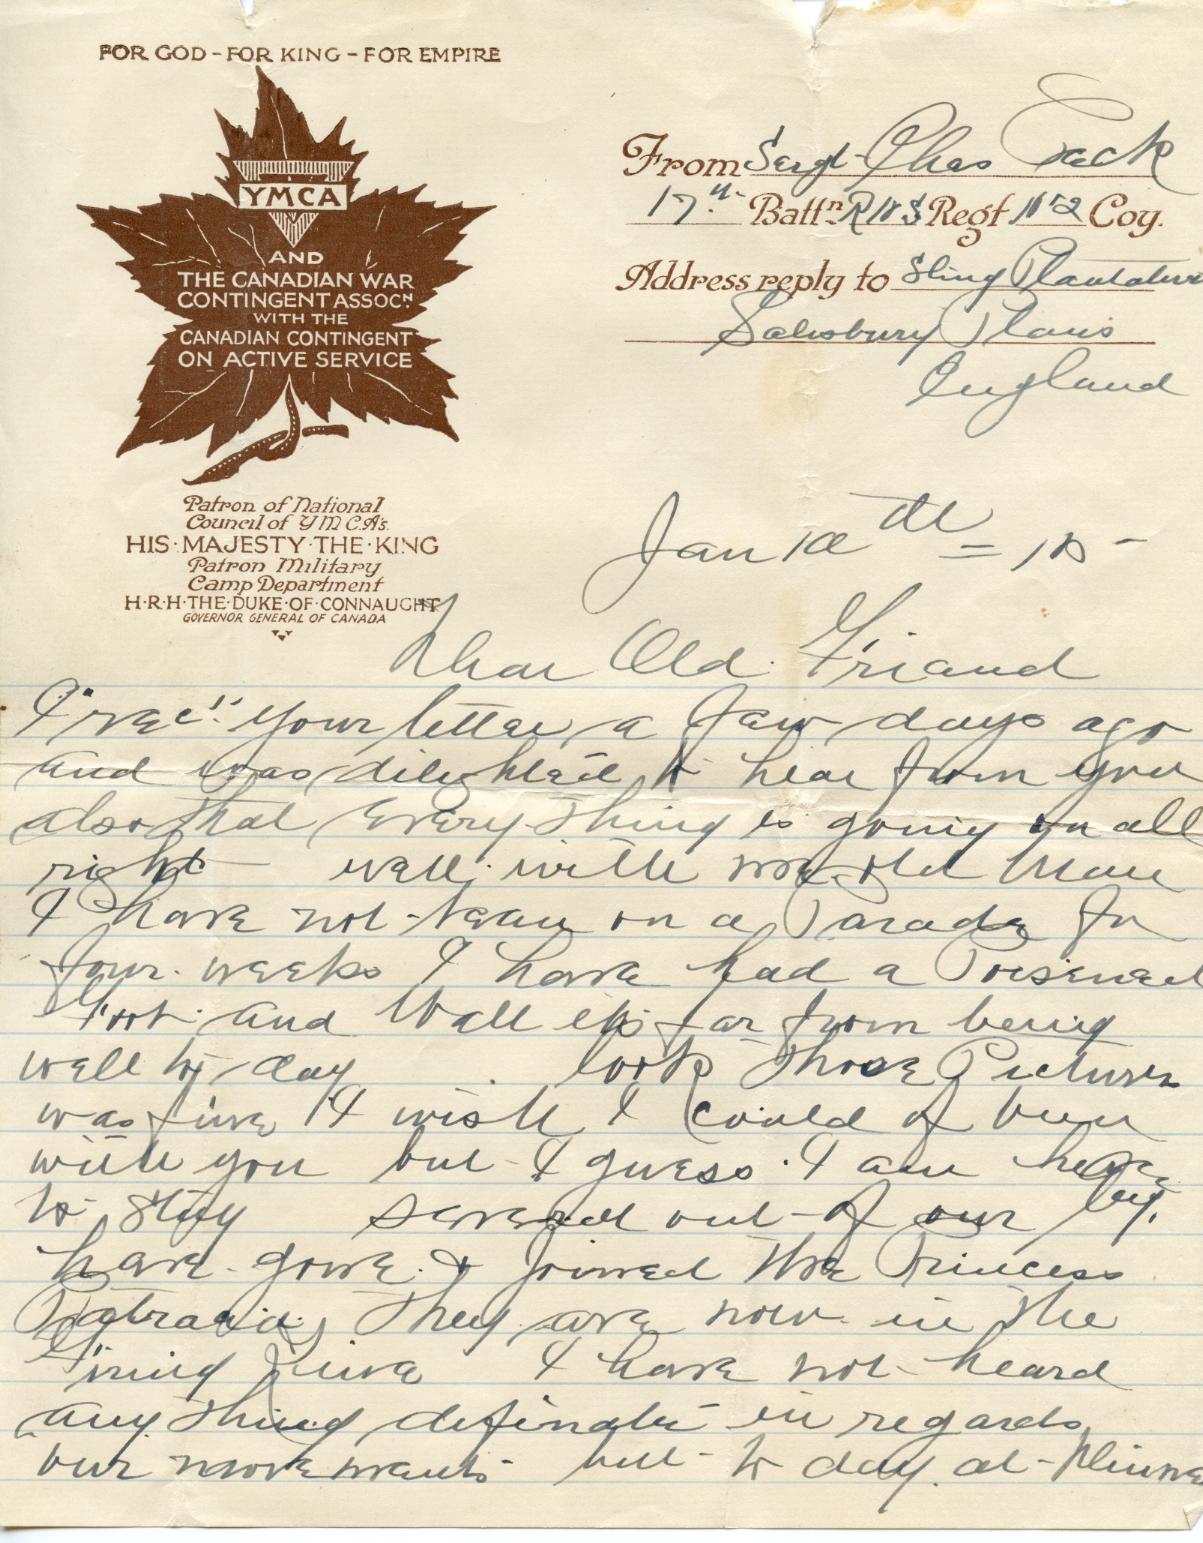 FOR GOD - FOR KING - FOR EMPIRE
YMCA
AND
THE CANADIAN WAR
CONTINGENT ASSOCN
WITH THE
CANADIAN CONTINGENT
ON ACTIVE SERVICE
Patron of National
Council of YMCA's.
HIS·MAJESTY·THE·KING
Patron Military
Camp Department
H·R·H·THE·DUKE·OF·CONNAUGHT
GOVERNOR GENERAL OF CANADA
From Sergt Chas
17th Battn Regt No 2 Coy.
Address reply to Sling
Salisbury Plains
England
Jan 10th = 15 -
Dear Old Friend
I rec'd your letter a few days ago
and was to hear from you
also that Every Thing is going on all
right well with me old Man
I have not been on a Parade for
four weeks I have had a
foot and far from being
well to day look Those Pictures
was fine I wish I could of been
with you but I guess I am here
to stay several out of our
have gone & Joined The Princess
They are now in the
Firing Line I have not heard
any Thing in regards
our but to day at